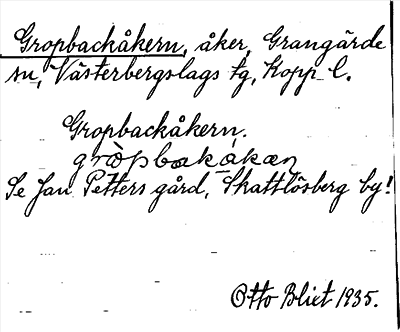 Gropbackåkern, åker, Grangärde
sn, Västerbergslags tg, Kopp. l.
Gropbackåkern.
gròpbakåkæn
Se Jan Petters gård, Skattlösberg by!
Otto Blixt 1935.